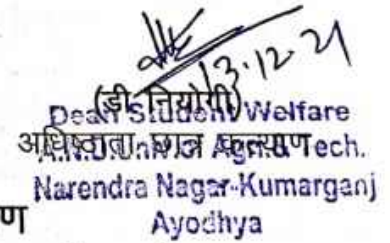 13.12.21
(डी नियोगी)
Dean Student Welfare
अधिष्ठाता छात्र कल्याण
A.N.D.Univ. of Agri.& Tech.
Narendra Nagar-Kumarganj
Ayodhya
ण